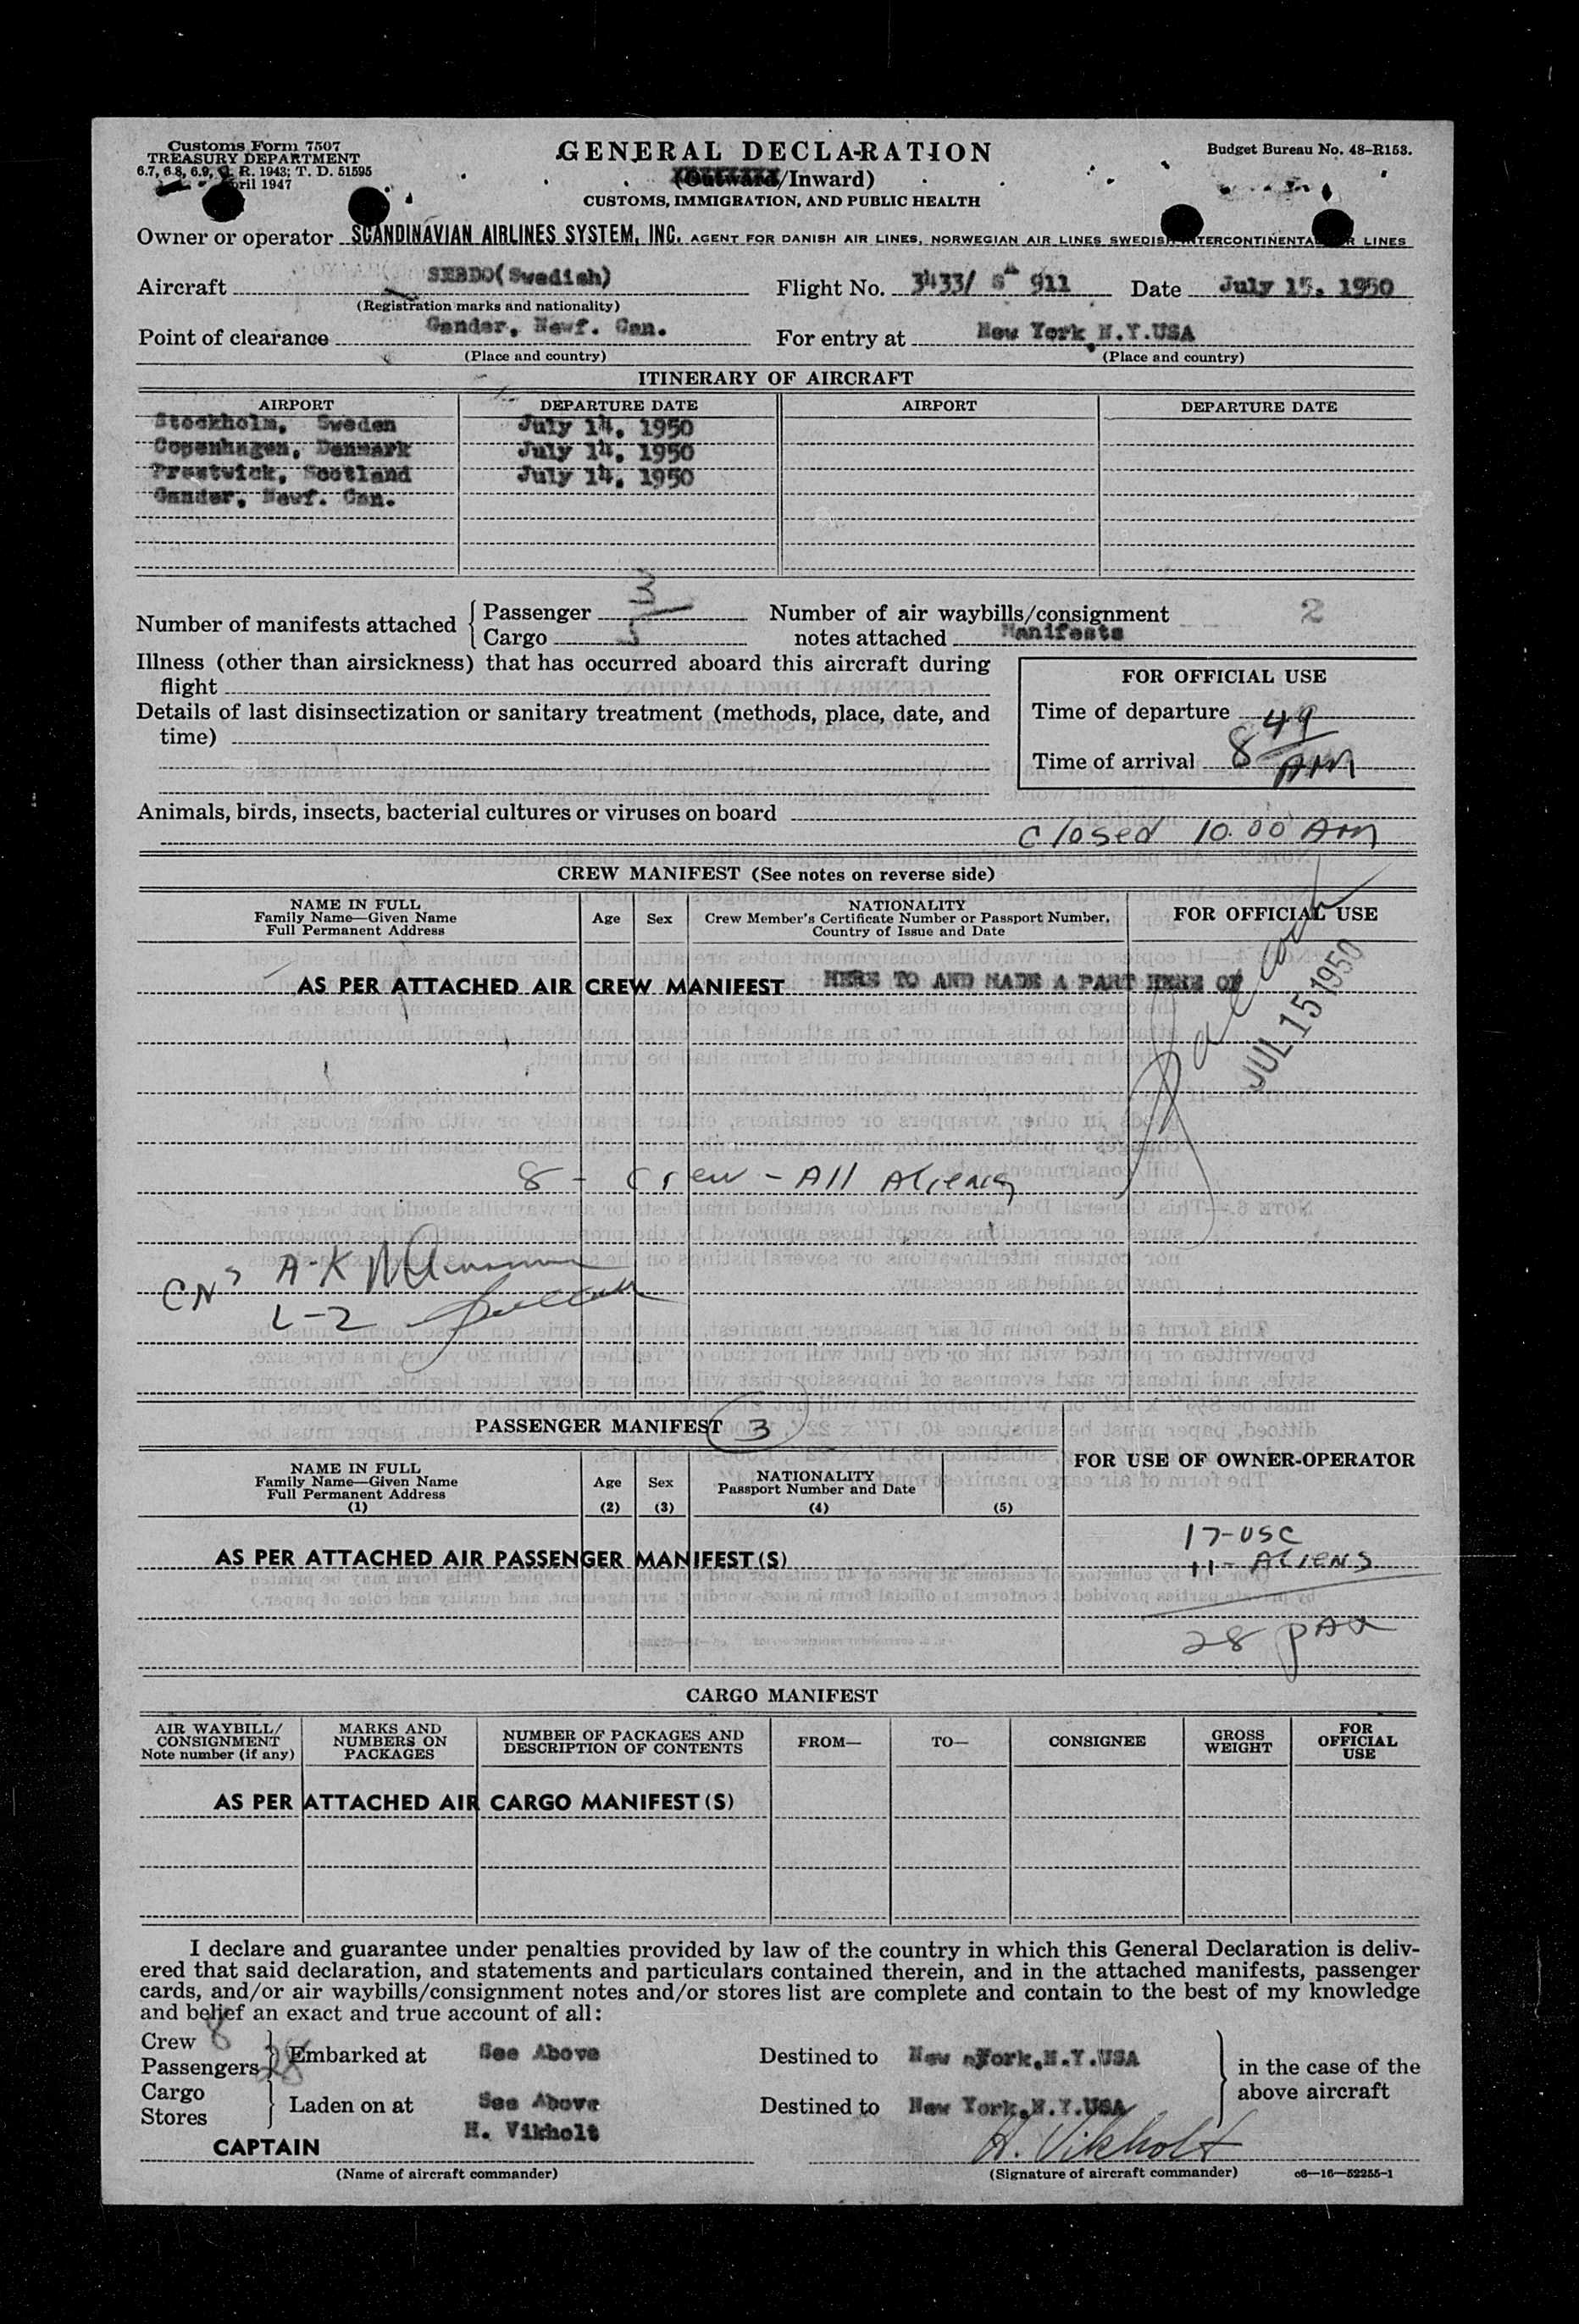 Customs Form 7507
TREASURY DEPARTMENT
6.7, 6.8, 6.9, C. R. 1943; T. D. 51595
April 1947
GENERAL DECLARATION
(Outward/Inward)
CUSTOMS, IMMIGRATION, AND PUBLIC HEALTH
Budget Bureau No. 48-R153.
Owner or operator SCANDINAVIAN AIRLINES SYSTEM, INC. AGENT FOR DANISH AIR LINES, NORWEGIAN AIR LINES SWEDISH INTERCONTINENTAL AIR LINES
Aircraft SEBDO(Swedish) Flight No. 3433/ 911 Date July 15, 1950
(Registration marks and nationality)
Point of clearance Gander, Newf. Can. For entry at New York N.Y.USA
(Place and country) (Place and country)
ITINERARY OF AIRCRAFT
AIRPORT DEPARTURE DATE AIRPORT DEPARTURE DATE
Stockholm, Sweden July 14, 1950
Copenhagen, Denmark July 14, 1950
Prestwick, Scotland July 14, 1950
Gander, Newf. Can.
Number of manifests attached { Passenger 3 Number of air waybills/consignment 2
Cargo 5 notes attached Manifests
Illness (other than airsickness) that has occurred aboard this aircraft during
flight
Details of last disinsectization or sanitary treatment (methods, place, date, and
time)
FOR OFFICIAL USE
Time of departure
Time of arrival 8 49 AM
Animals, birds, insects, bacterial cultures or viruses on board
Closed 10.00 AM
CREW MANIFEST (See notes on reverse side)
NAME IN FULL
Family Name—Given Name
Full Permanent Address
Age Sex
NATIONALITY
Crew Member's Certificate Number or Passport Number,
Country of Issue and Date
FOR OFFICIAL USE
AS PER ATTACHED AIR CREW MANIFEST HERE TO AND MADE A PART HERE OF
JUL 15 1950
8 - Crew - All Aliens
A-K
L-2
PASSENGER MANIFEST 3
FOR USE OF OWNER-OPERATOR
NAME IN FULL
Family Name—Given Name
Full Permanent Address
(1)
Age
(2)
Sex
(3)
NATIONALITY
Passport Number and Date
(4)
(5)
17-USC
AS PER ATTACHED AIR PASSENGER MANIFEST(S) 11- ALIENS
28 PAX
CARGO MANIFEST
AIR WAYBILL/
CONSIGNMENT
Note number (if any)
MARKS AND
NUMBERS ON
PACKAGES
NUMBER OF PACKAGES AND
DESCRIPTION OF CONTENTS
FROM—
TO—
CONSIGNEE
GROSS
WEIGHT
FOR
OFFICIAL
USE
AS PER ATTACHED AIR CARGO MANIFEST(S)
I declare and guarantee under penalties provided by law of the country in which this General Declaration is deliv-
ered that said declaration, and statements and particulars contained therein, and in the attached manifests, passenger
cards, and/or air waybills/consignment notes and/or stores list are complete and contain to the best of my knowledge
and belief an exact and true account of all:
Crew 8
Passengers 28 } Embarked at See Above Destined to New York,N.Y.USA
in the case of the
above aircraft
Cargo
Stores } Laden on at See Above Destined to New York,N.Y.USA
CAPTAIN H. Vikholt H. Vikholt
(Name of aircraft commander) (Signature of aircraft commander) c6—16—52255-1